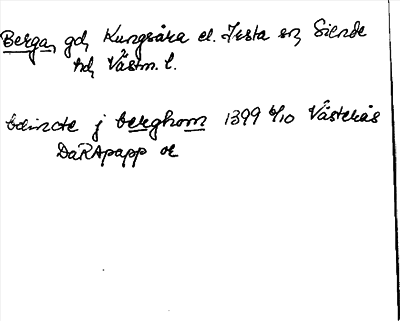 Berga, gd, Kungsåra el. Testa sn, Siende
hd, Västm. l.
boincte j berghom 1399 6/10 Västerås
DaRApapp or